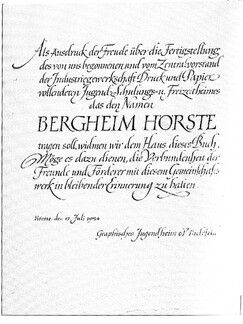 Als Ausdruck der Freude über die Fertigstellung
des von uns begonnenen und vom Zentralvorstand
der Industriegewerkschaft Druck und Papier
vollendeten Jugend-Schulungs-u. Freizeitheimes
das den Namen
BERGHEIM HÖRSTE
tragen soll, widmen wir dem Haus dieses Buch.
Möge es dazu dienen, die Verbundenheit der
Freunde und Förderer mit diesem Gemeinschafts-
werk in bleibender Erinnerung zu halten.
Hörste, den 17. Juli 1954
Graphisches Jugendheim